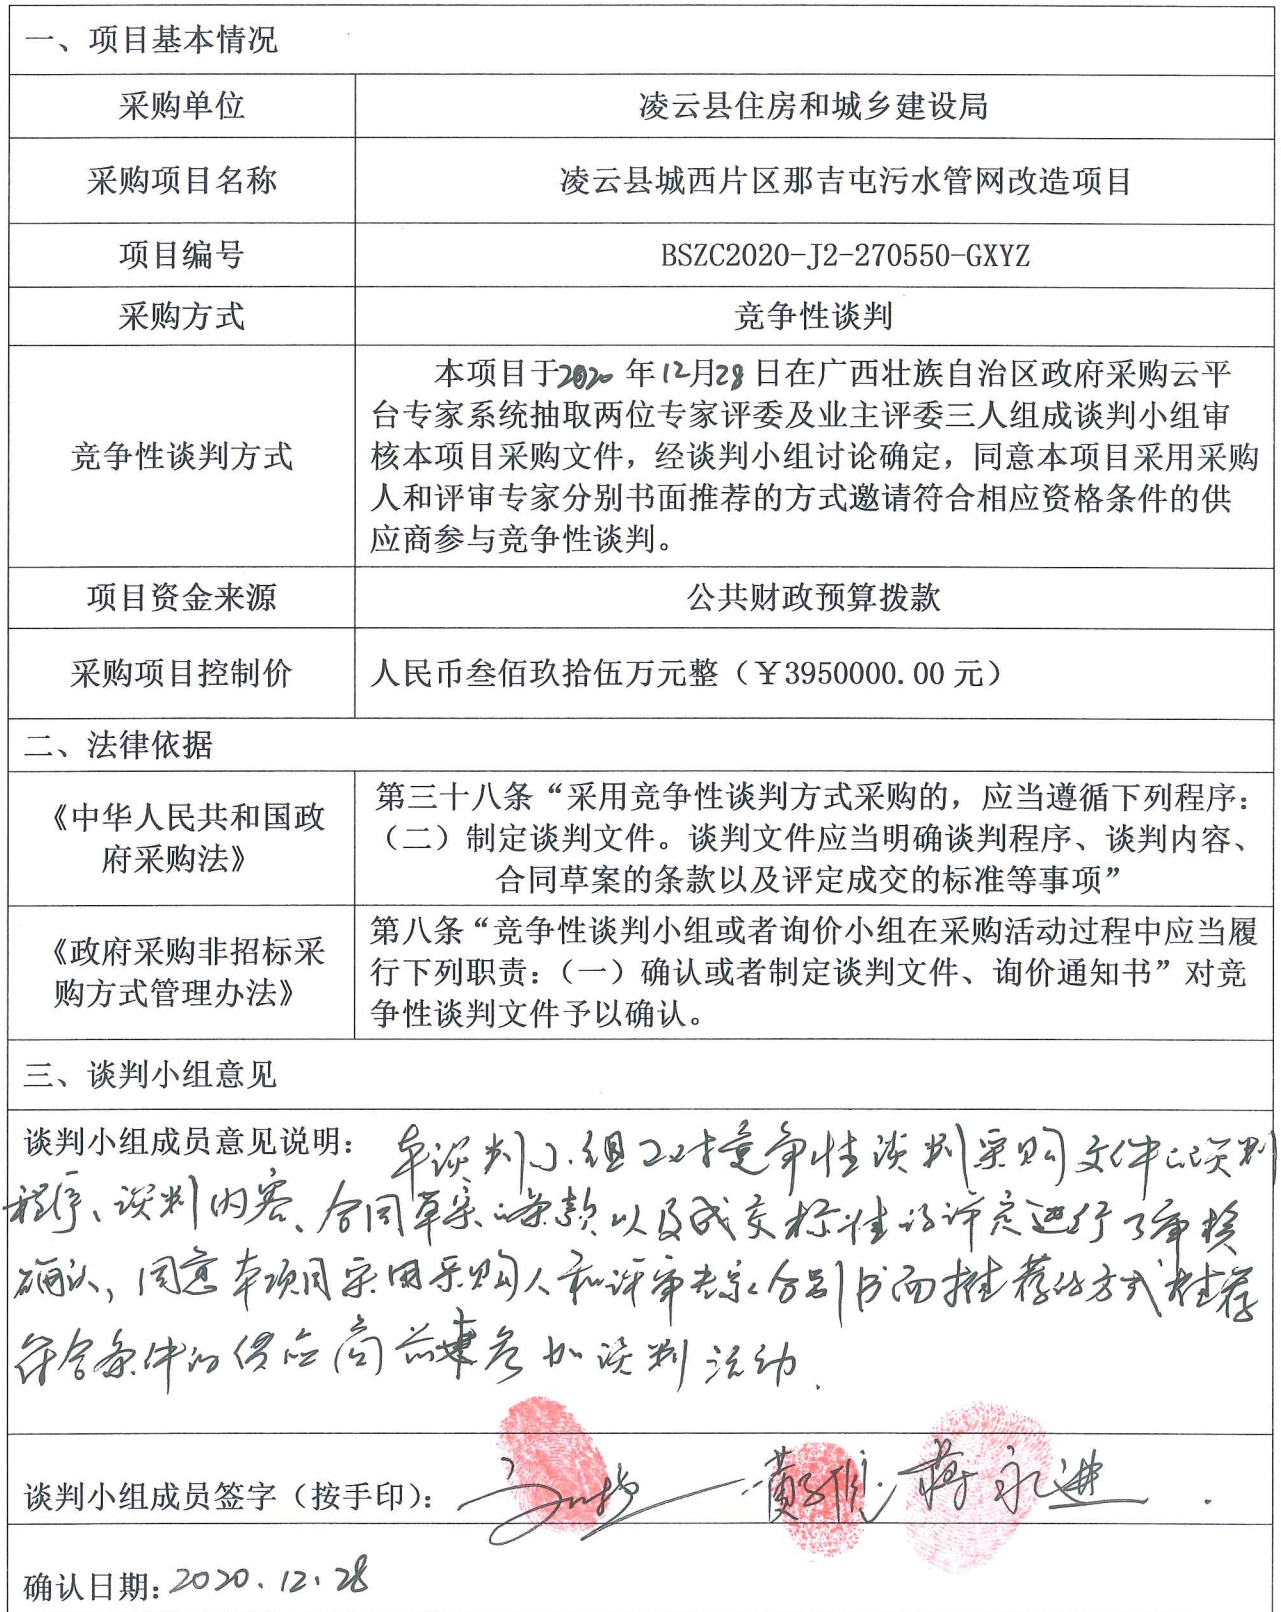 一、项目基本情况
采购单位
凌云县住房和城乡建设局
采购项目名称
凌云县城西片区那吉屯污水管网改造项目
项目编号
BSZC2020-J2-270550-GXYZ
采购方式
竞争性谈判
竞争性谈判方式
本项目于2020年12月28日在广西壮族自治区政府采购云平
台专家系统抽取两位专家评委及业主评委三人组成谈判小组审
核本项目采购文件，经谈判小组讨论确定，同意本项目采用采购
人和评审专家分别书面推荐的方式邀请符合相应资格条件的供
应商参与竞争性谈判。
项目资金来源
公共财政预算拨款
采购项目控制价
人民币叁佰玖拾伍万元整（￥3950000.00元）
二、法律依据
《中华人民共和国政
府采购法》
第三十八条“采用竞争性谈判方式采购的，应当遵循下列程序：
（二）制定谈判文件。谈判文件应当明确谈判程序、谈判内容、
合同草案的条款以及评定成交的标准等事项”
《政府采购非招标采
购方式管理办法》
第八条“竞争性谈判小组或者询价小组在采购活动过程中应当履
行下列职责：（一）确认或者制定谈判文件、询价通知书”对竞
争性谈判文件予以确认。
三、谈判小组意见
谈判小组成员意见说明：本谈判小组已对竞争性谈判采购文件的谈判
程序、谈判内容、合同草案的条款以及成交标准的评定进行了审核
确认，同意本项目采用采购人和评审专家分别书面推荐的方式推荐
符合条件的供应商前来参加谈判活动.
谈判小组成员签字（按手印）：蒋永进
确认日期：2020.12.28